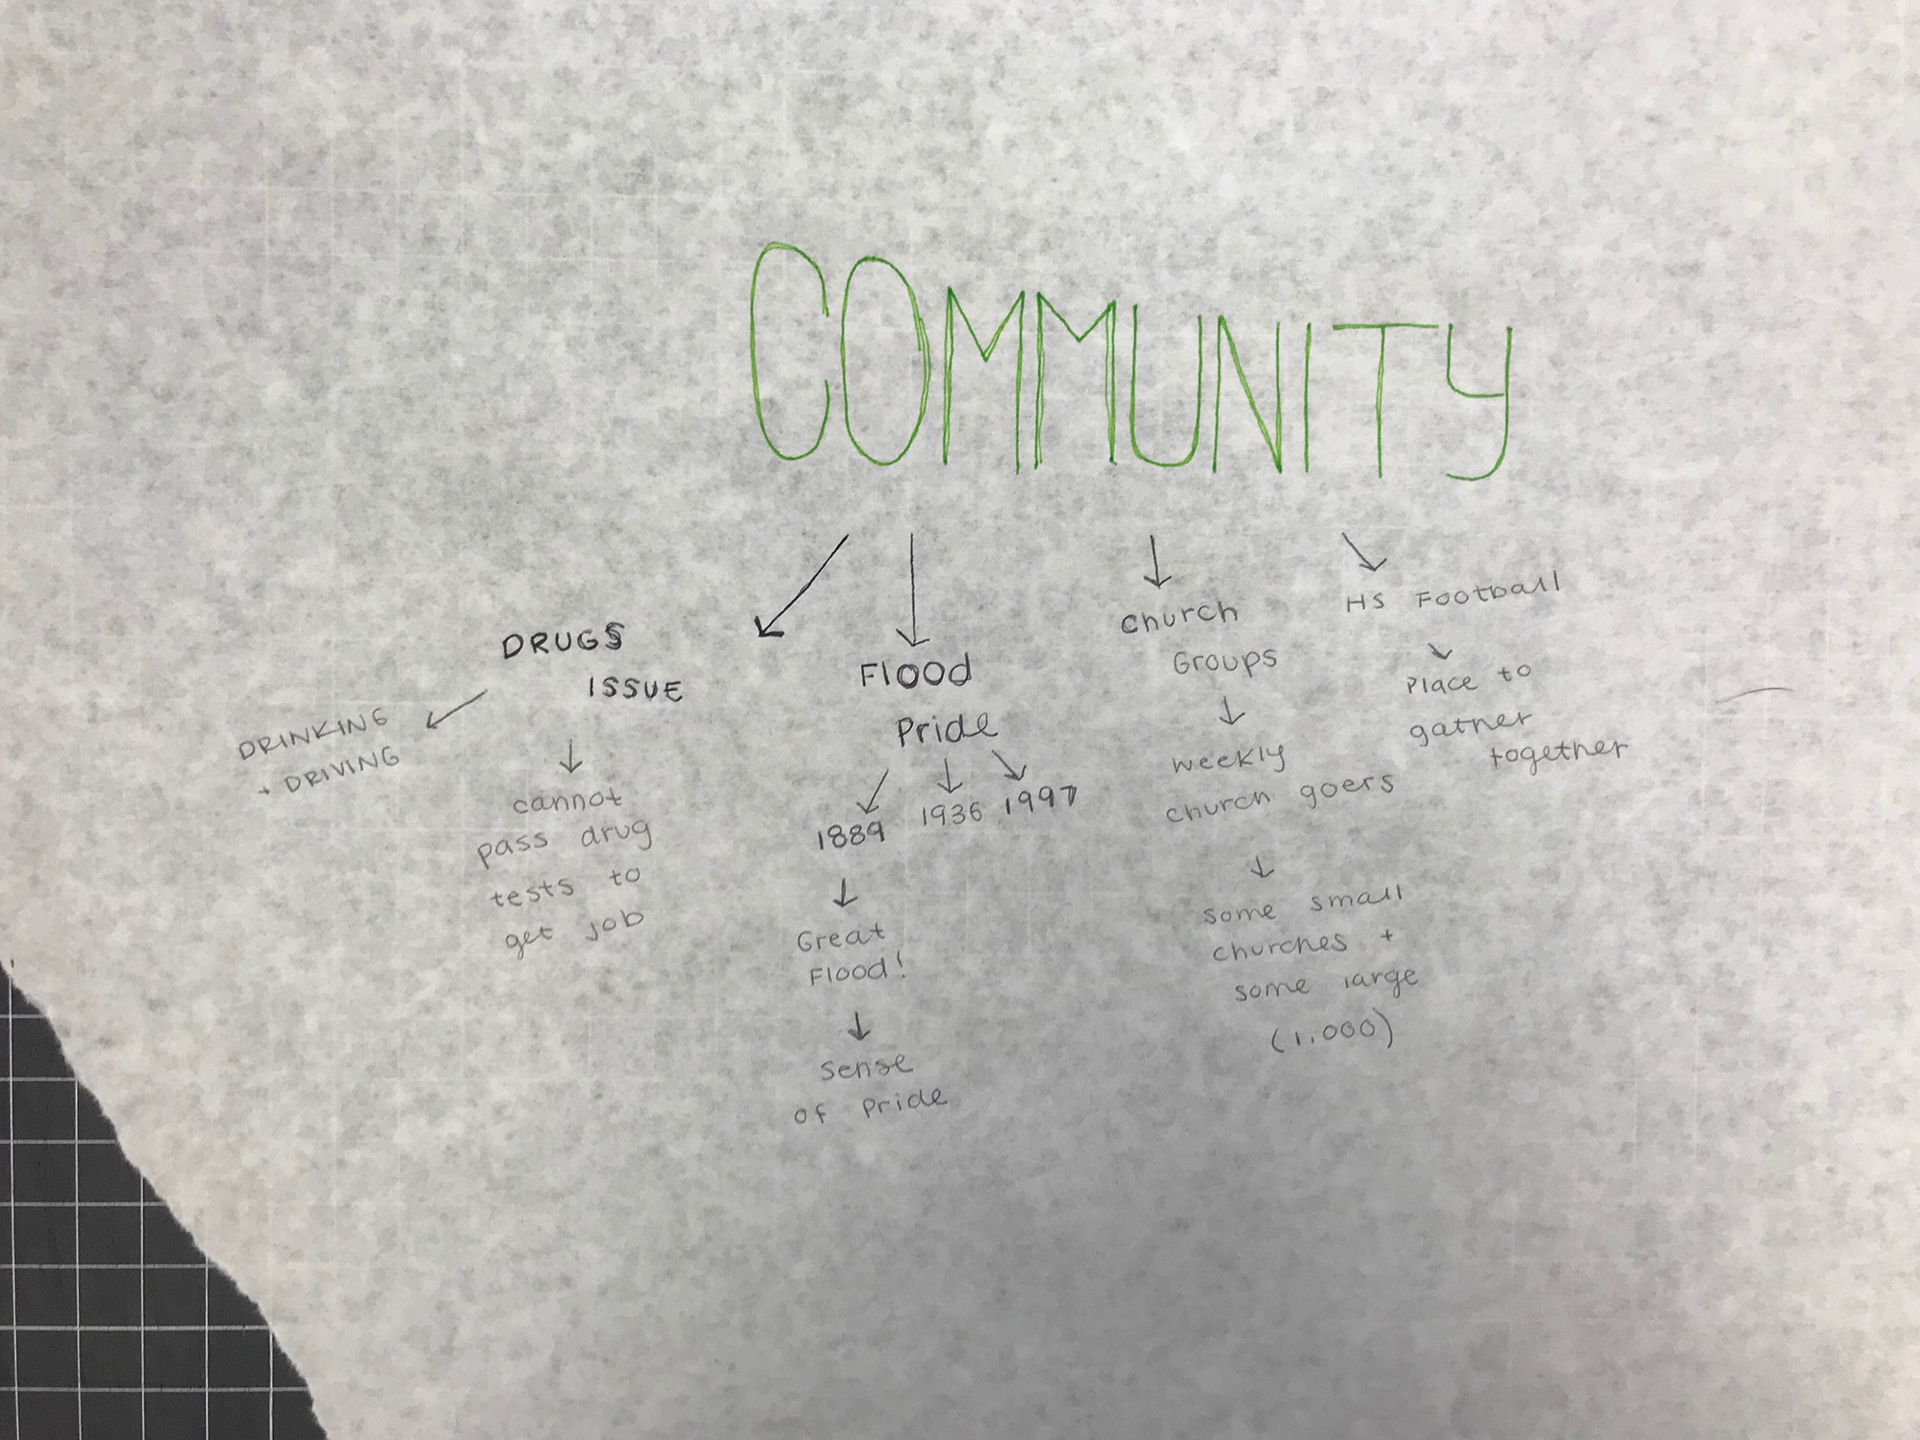 COMMUNITY
DRUGS
ISSUE
DRINKING
+ DRIVING
cannot
pass drug
tests to
get job
Flood
Pride
1889
1936
1997
Great
Flood!
Sense
of Pride
Church
Groups
weekly
church goers
some small
churches +
some large
(1,000)
HS Football
Place to
gather
together